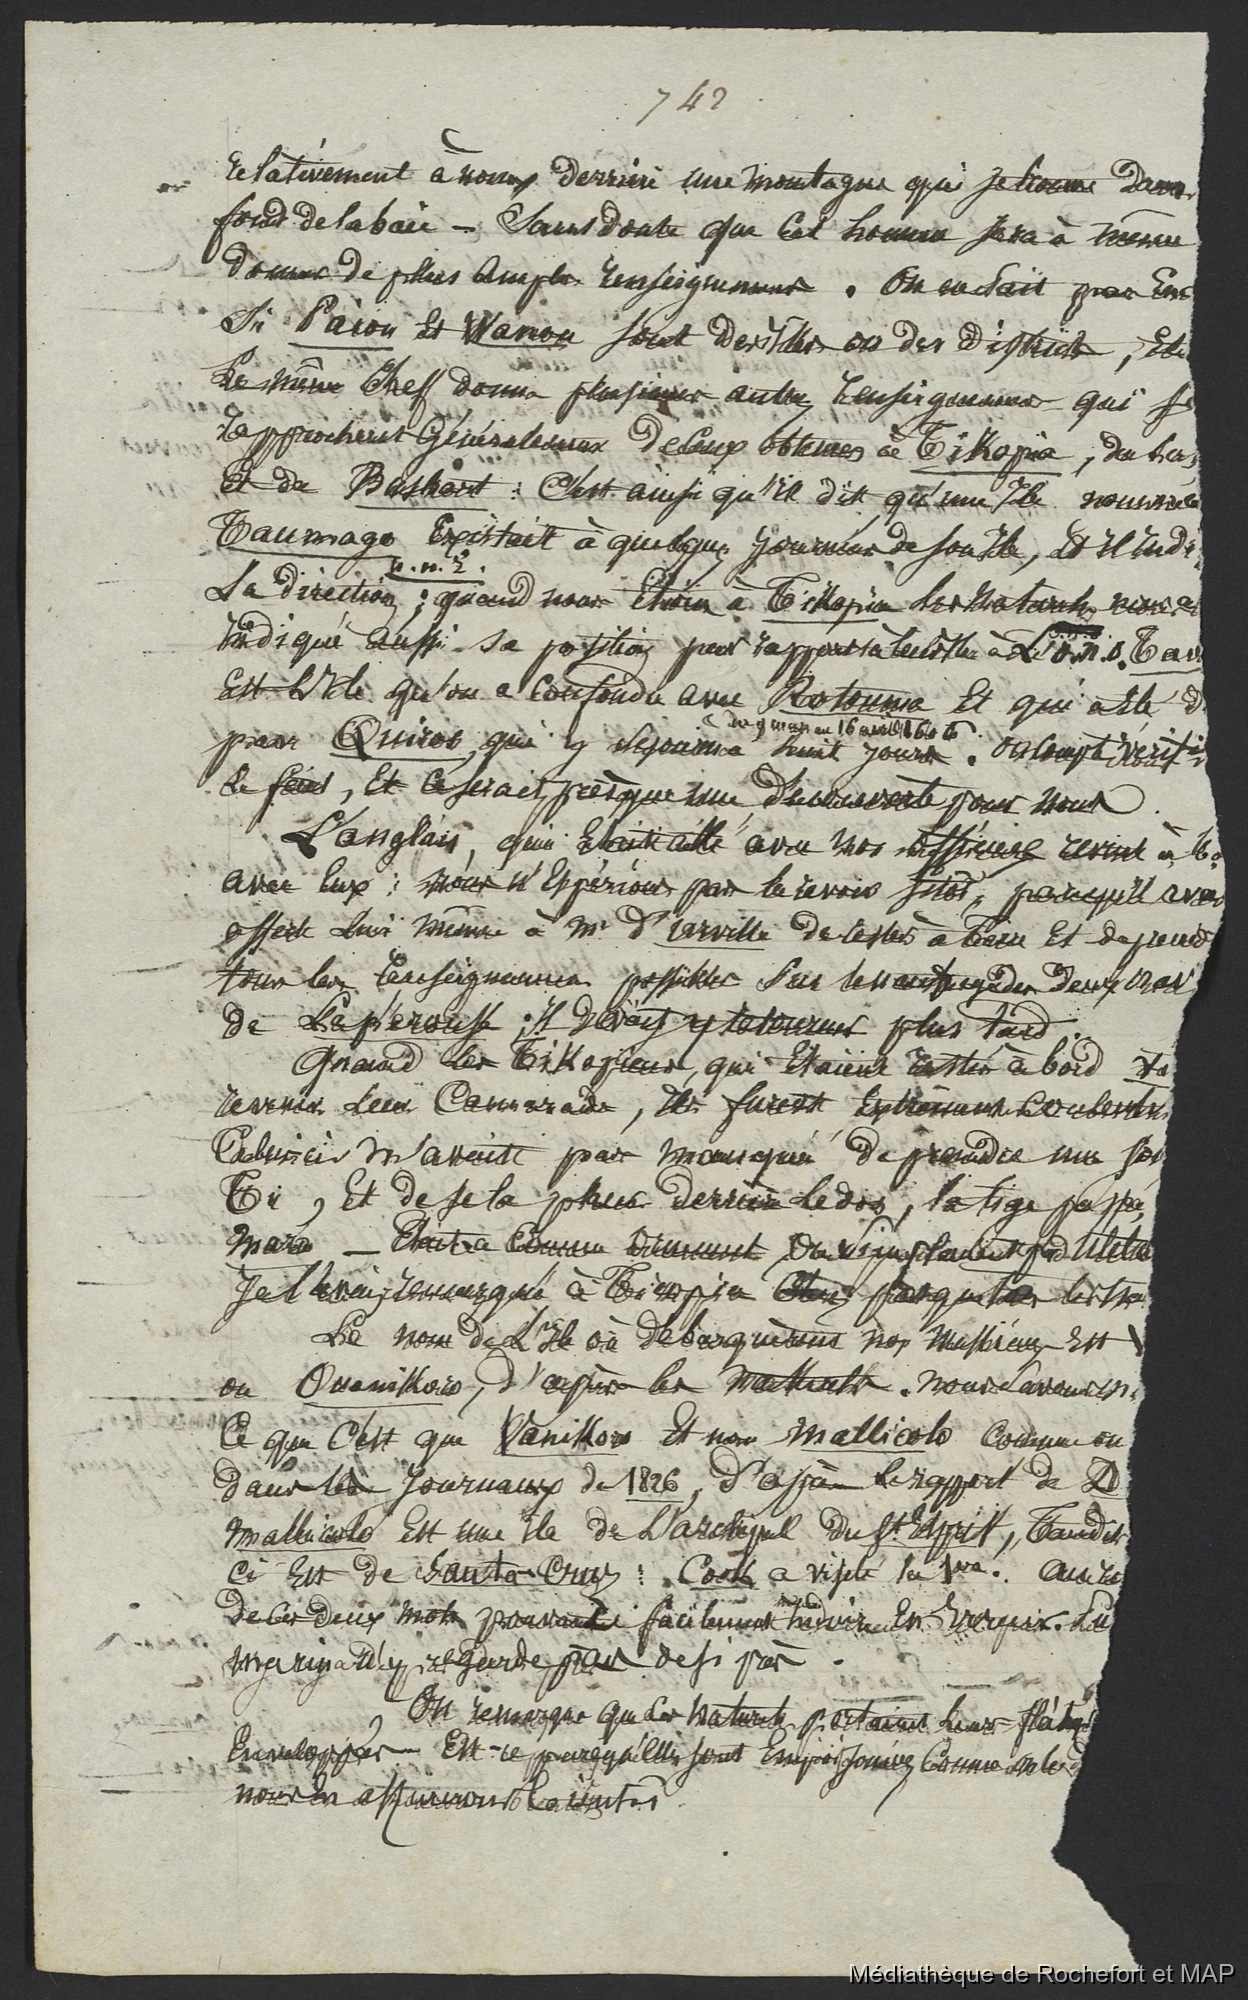 742
relativement à nous derrière une montagne qui se trouve dans
fond de la baie – Sans doute que cet homme sera à même
donner de plus amples renseignemens. On ne sait pas enc
Si Païou et Wanou sont des îles ou des districts, et
Le même Chef donna plusieurs autres renseignemens qui se
rapprochent généralement de ceux obtenus à Tikopia, du
et de Bushart : C'est ainsi qu'il dit qu'une île nommée
Taumago Existait à quelques journées de son île, et il ind
n.n.E.
La direction ; quand nous étions à Tikopia les naturels nous a
indiqué aussi sa position par rapport à leur île à L'o.n.o. Tau
Est L'île qu'on a confondu avec Rotouma Et qui a été d
du 9 mars au 16 avril 1606
par Quiros, qui y séjourna huit jours. on compte vérifi
le fait, Et ce serait presque une découverte pour nous.
L'anglais, qui était allé avec nos officiers revint à bo
avec eux ; nous n'espérions pas le revoir sitôt, parcequ'il avait
offert lui même à Mr. D'urville de rester à terre Et de prend
tous les renseignemens possibles sur le naufrage des deux
de Lapérouse ; il devait y retourner plus tard.
Quand les Tikopiens, qui étaient restés à bord
revenir leur Camarade, ils furent extrêmement contents
Celui-ci n'avait pas manqué de prendre une
Ti, Et de se la placer derrière le dos, la tige passée
maro –
Je l'avais remarqué à Tikopia
Le nom de L'île où débarquèrent nos messieurs Est V
ou Ouanikoro, d'après les naturels. nous
Ce que C'est que Vanikoro Et non Mallicolo comme on
dans les Journaux de 1826, d'après Le rapport de D
Mallicolo Est une île de L'archipel du St. Esprit, Tandis
Ci Est de Santa-Cruz : Cook a visité la 1ère.
de ces deux mots pouvait facilement induire en erreur. Un
marin n'y regarde pas de si près.
On remarqua que les naturels portaient leurs flêches
Enveloppées – Est-ce parcequ'elles sont Empoisonnées Comme on le d
nous En assurerons
Médiathèque de Rochefort et MAP